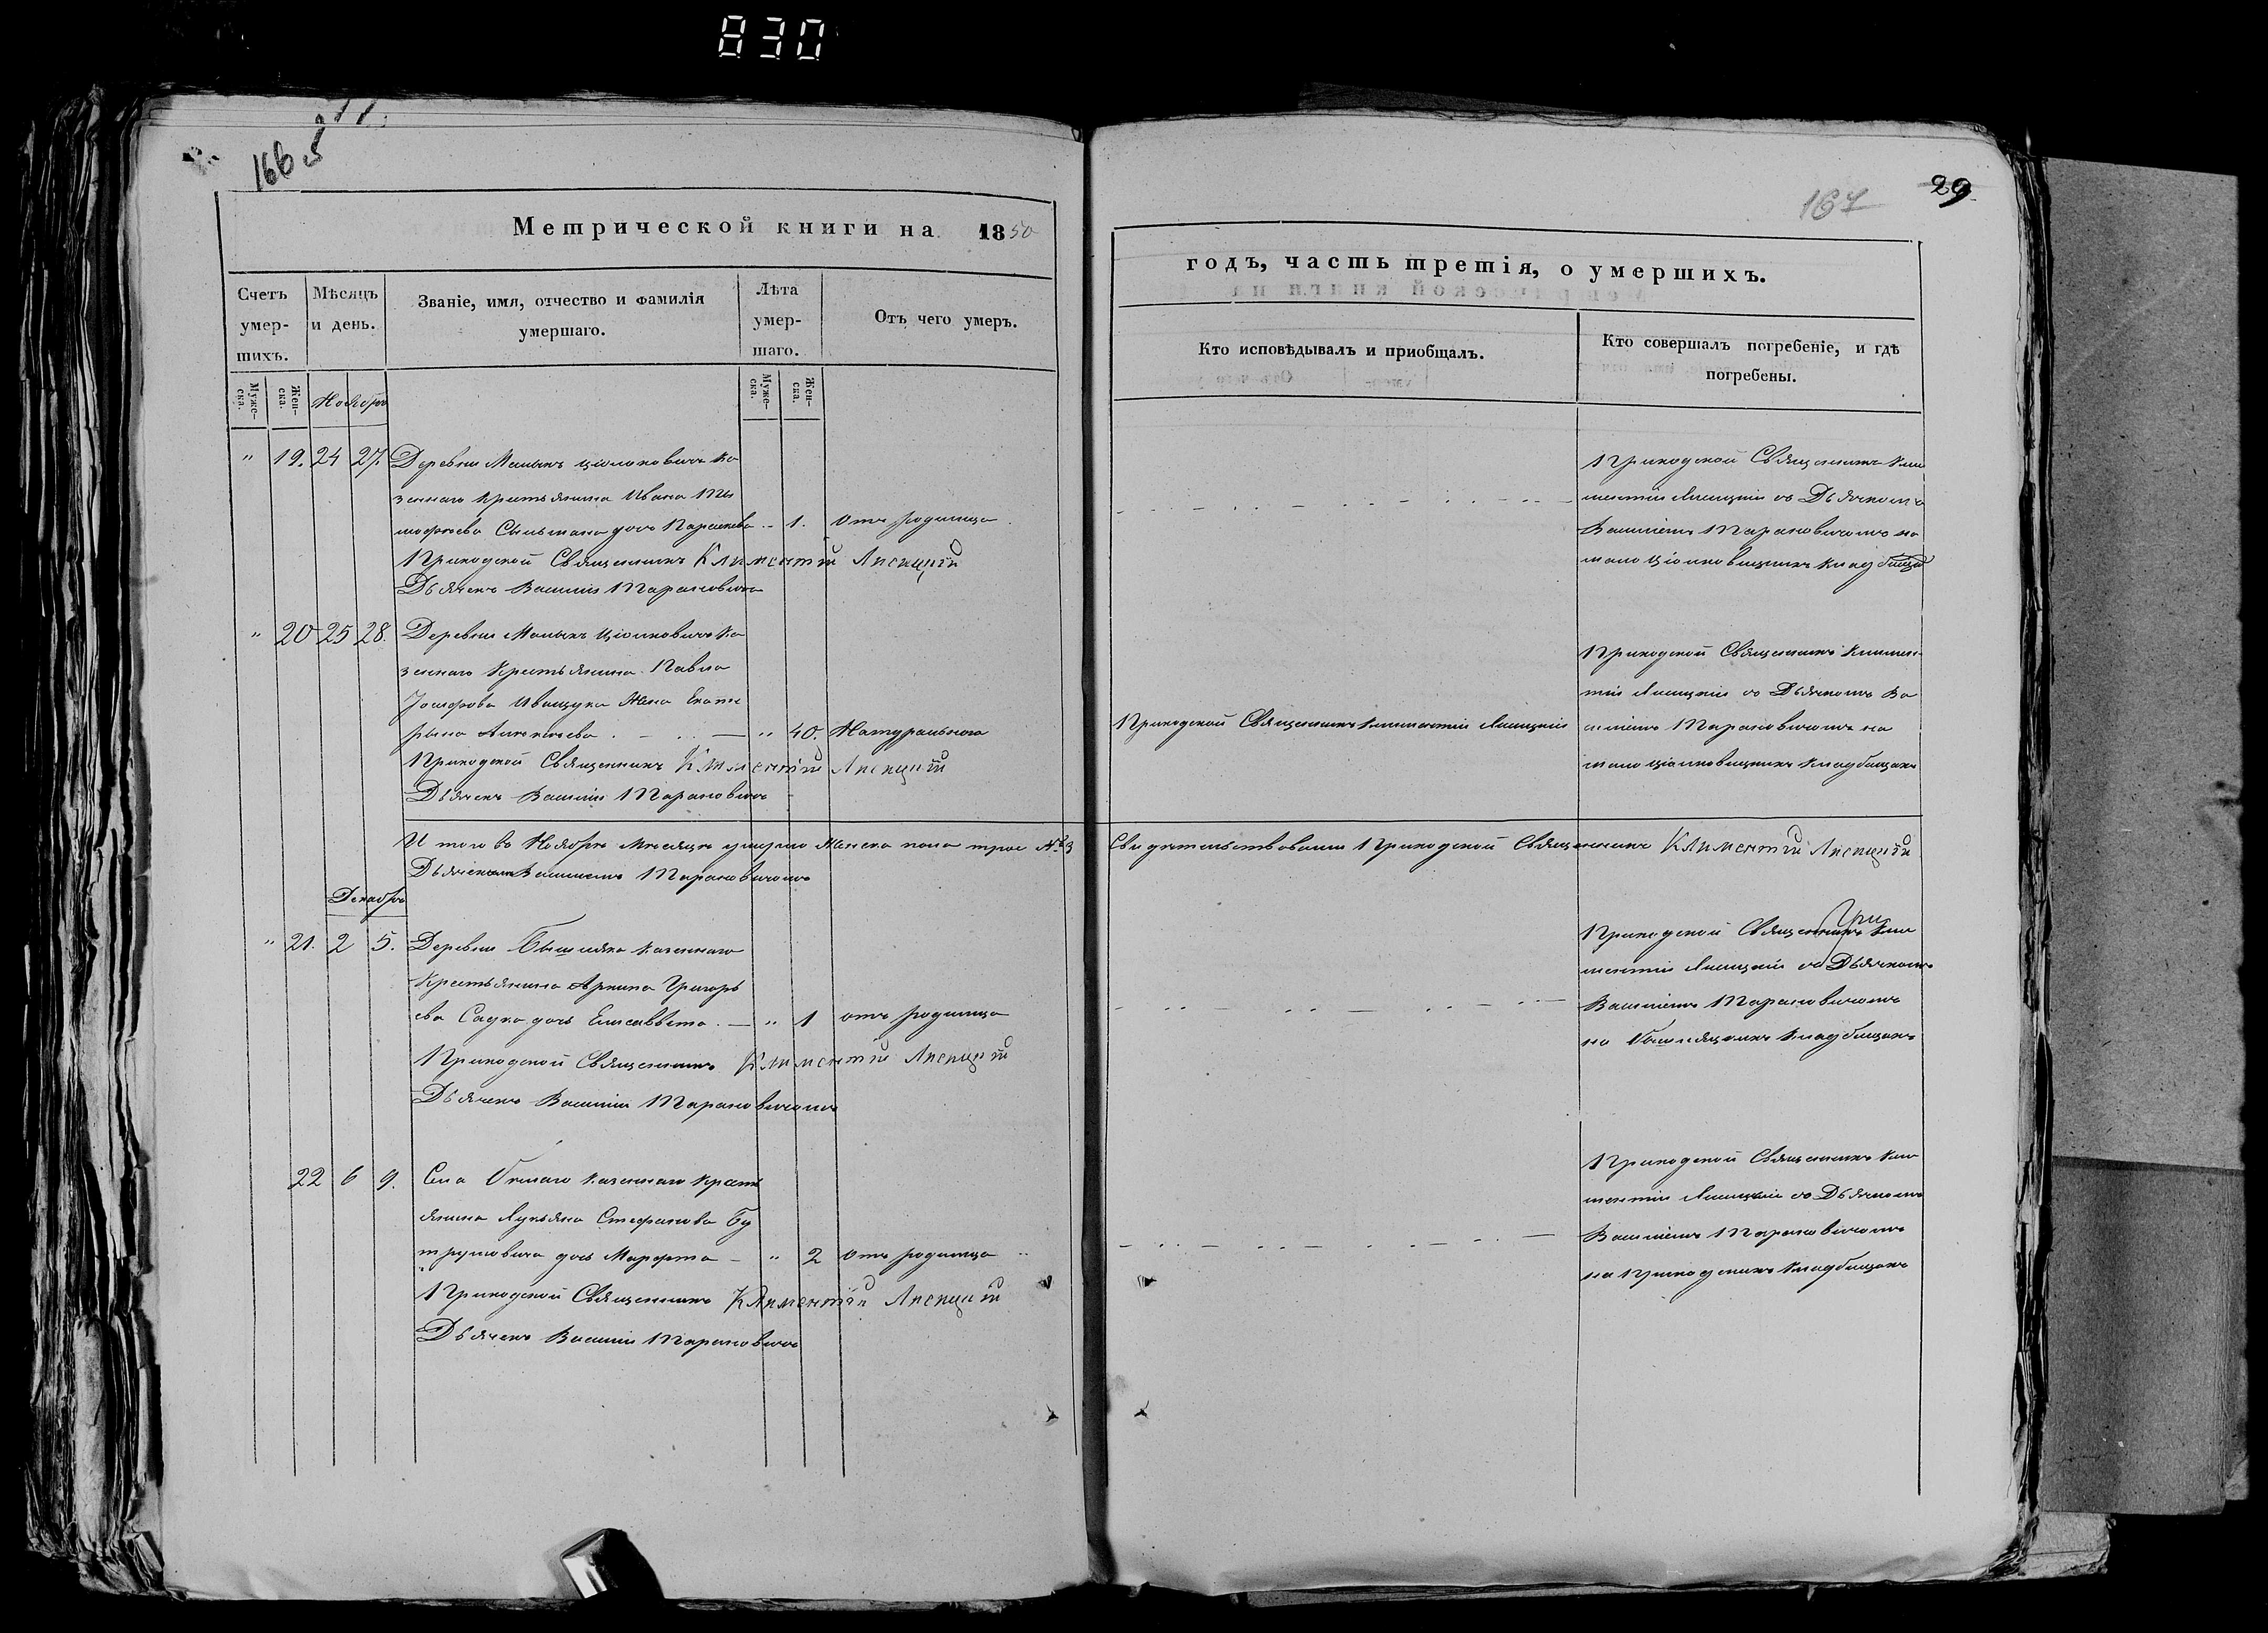 830
166
167
29
Метрической книги на 1850
Счетъ умер-шихъ.
Мѣсяцъ и день.
Званіе, имя, отчество и фамилія умершаго.
Лѣта умер-шаго.
Отъ чего умеръ.
Муже-ска.
Жен-ска.
Ноябрь
Муже-ска.
Жен-ска.
" 19. 24 27. Деревни Малыхъ Ціолковичъ ка
зеннаго крестьянина Ивана Ти
мофѣева дочь Параскева 1. Отъ родимца
Приходской Священникъ Климентій Лисицкій
Дьячекъ Василій Тарановичъ
" 20 25 28. Деревни Малыхъ Ціолковичъ ка
зеннаго крестьянина Павла
Іосифова Иващука жена Екате
рына Алексѣева " 40. Натурально
Приходской Священникъ Климентій Лисицкій
Дьячекъ Василій Тарановичъ
И того въ Ноябрѣ мѣсяцѣ умерло женска пола трое №3
Дьячекомъ Василіемъ Тарановичомъ
Декабрь
" 21. 2 5. Деревни казеннаго
крестьянина Григорь
ева Садко дочь Елисавета " 1 отъ родимца
Приходской Священникъ Климентій Лисицкій
Дьячекъ Василій Тарановичомъ
22 6 9. Села казеннаго крестъ
янина Лукьяна Стефанова Бу
трумовича дочь Марфта " 2 отъ родимца
Приходской Священникъ Климентій Лисицкій
Дьячекъ Василій Тарановичъ
годъ, часть третія, о умершихъ.
Кто исповѣдывалъ и приобщалъ.
Кто совершалъ погребеніе, и гдѣ погребены.
Приходской Священникъ Кли
ментій Лисицкій съ Дьячкомъ
Василіемъ Тарановичомъ на
мало Ціолковицкихъ кладбище
Приходской Священникъ Климентій Лисицкій
Приходской Священникъ Климен
тій Лисицкій съ Дьячкомъ Ва
силіемъ Тарановичомъ на
мало Ціолковицкихъ кладбищахъ
Свидѣтельствовали Приходской Священникъ Климентій Лисицкій
Приходской Священникъ Кли
ментій Лисицкій съ Дьячкомъ
Василіемъ Тарановичомъ
на кладбищахъ
Приходской Священникъ Кли
ментій Лисицкій съ Дьячкомъ
Василіемъ Тарановичомъ
на Приходскихъ кладбищахъ